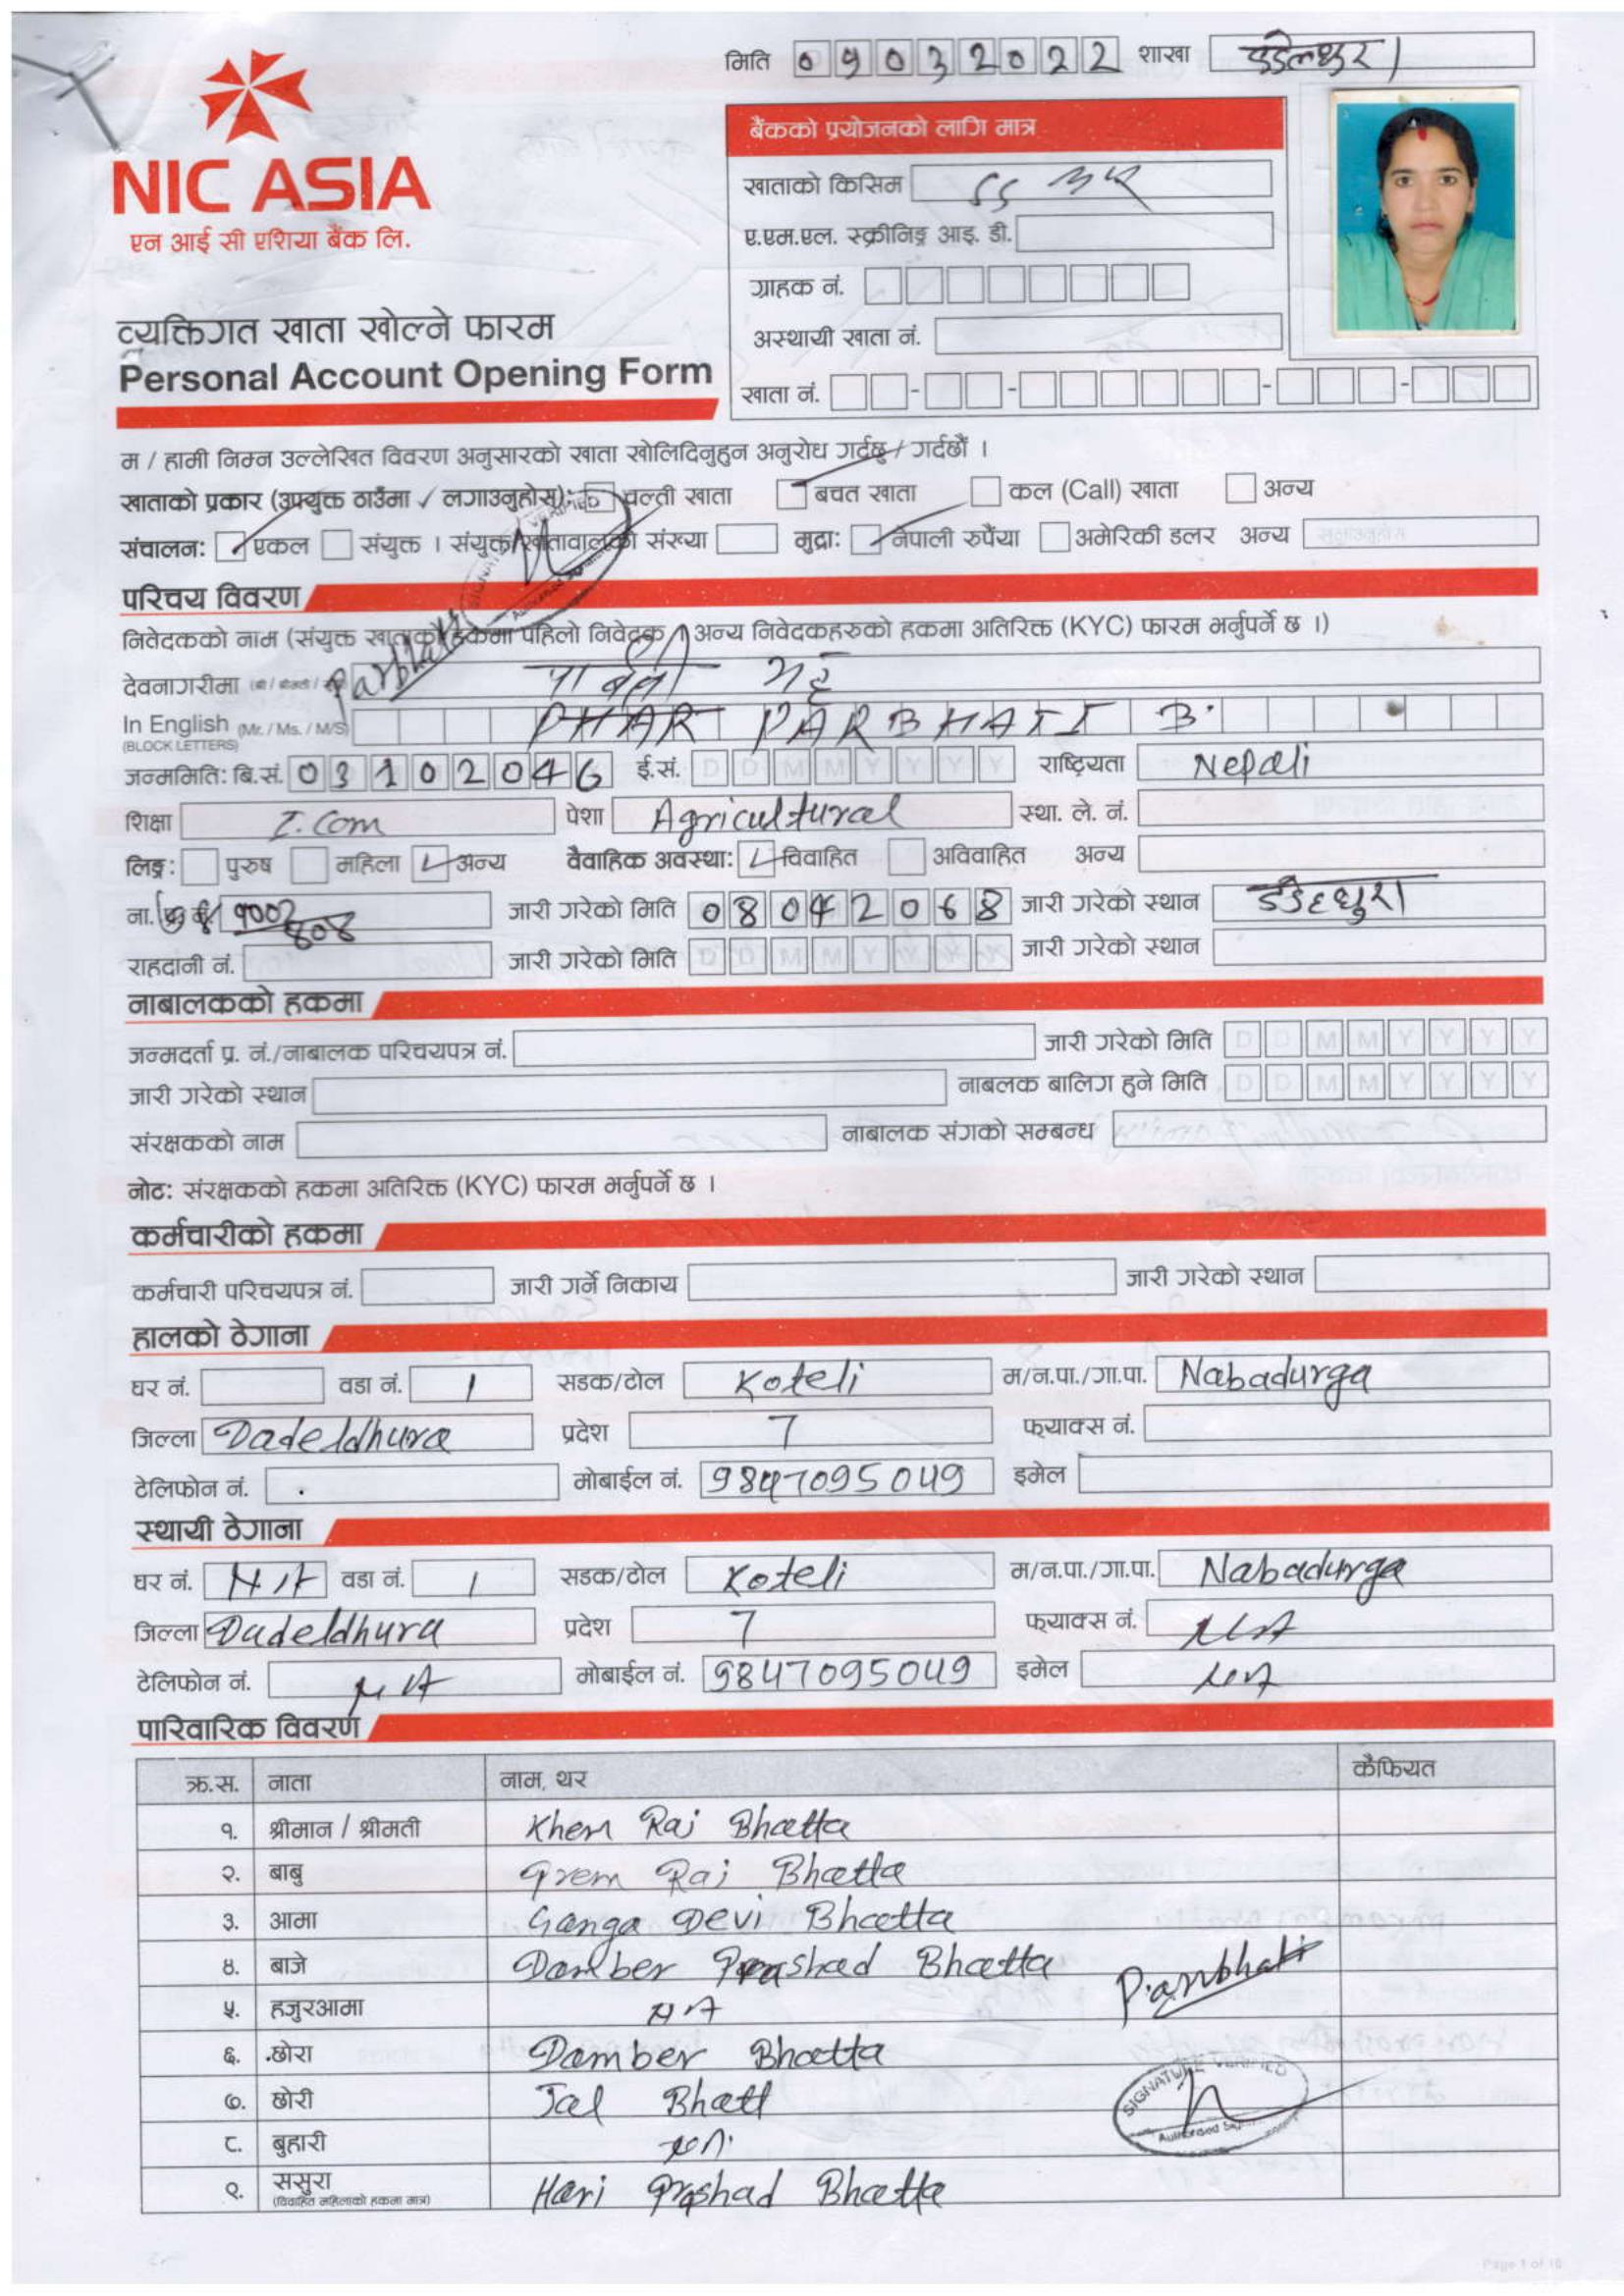 मिति 09032022 शाखा डडेलधुरा
NIC ASIA
एन आई सी एशिया बैंक लि.
बैंकको प्रयोजनको लागि मात्र
खाताको किसिम
ए.एम.एल. स्क्रीनिङ्ग आइ. डी.
ग्राहक नं.
अस्थायी खाता नं.
खाता नं. - - - -
व्यक्तिगत खाता खोल्ने फारम
Personal Account Opening Form
म / हामी निम्न उल्लेखित विवरण अनुसारको खाता खोलिदिनुहुन अनुरोध गर्दछु / गर्दछौं ।
खाताको प्रकार (उपयुक्त ठाउँमा ✓ लगाउनुहोस्): चल्ती खाता बचत खाता कल (Call) खाता अन्य
संचालन: एकल संयुक्त । संयुक्त खातावालको संख्या मुद्रा: नेपाली रुपैंया अमेरिकी डलर अन्य
परिचय विवरण
निवेदकको नाम (संयुक्त खाताको हकमा पहिलो निवेदक । अन्य निवेदकहरुको हकमा अतिरिक्त (KYC) फारम भर्नुपर्ने छ ।)
देवनागरीमा पार्वती भट्ट
In English (Mr. / Ms. / M/S) PARBHATI
(BLOCK LETTERS)
जन्ममिति: बि.सं. 03102046 ई.सं. DDMMYYYY राष्ट्रियता Nepali
शिक्षा I.Com पेशा Agricultural स्था. ले. नं.
लिङ्ग: पुरुष महिला अन्य वैवाहिक अवस्था: विवाहित अविवाहित अन्य
ना. जारी गरेको मिति 08042068 जारी गरेको स्थान
राहदानी नं. जारी गरेको मिति DDMMYYYY जारी गरेको स्थान
नाबालकको हकमा
जन्मदर्ता प्र. नं./नाबालक परिचयपत्र नं. जारी गरेको मिति DDMMYYYY
जारी गरेको स्थान नाबलक बालिग हुने मिति DDMMYYYY
संरक्षकको नाम नाबालक संगको सम्बन्ध
नोट: संरक्षकको हकमा अतिरिक्त (KYC) फारम भर्नुपर्ने छ ।
कर्मचारीको हकमा
कर्मचारी परिचयपत्र नं. जारी गर्ने निकाय जारी गरेको स्थान
हालको ठेगाना
घर नं. वडा नं. 1 सडक/टोल Koteli म/न.पा./गा.पा. Nabadurga
जिल्ला Dadeldhura प्रदेश 7 फ्याक्स नं.
टेलिफोन नं. मोबाईल नं. 9847095049 इमेल
स्थायी ठेगाना
घर नं. N/A वडा नं. 1 सडक/टोल Koteli म/न.पा./गा.पा. Nabadurga
जिल्ला Dadeldhura प्रदेश 7 फ्याक्स नं. NA
टेलिफोन नं. NA मोबाईल नं. 9847095049 इमेल NA
पारिवारिक विवरण
क्र.स. नाता नाम, थर कैफियत
१. श्रीमान / श्रीमती Khem Raj Bhatta
२. बाबु Prem Raj Bhatta
३. आमा Ganga Devi Bhatta
४. बाजे Damber Prashad Bhatta
Parbhati
५. हजुरआमा NA
६. छोरा Damber Bhatta
७. छोरी Jal Bhatt
SIGNATURE VERIFIED
Authorized
८. बुहारी NA
९. ससुरा Hari Prashad Bhatta
(विवाहित महिलाको हकमा मात्र)
Page 1 of 16